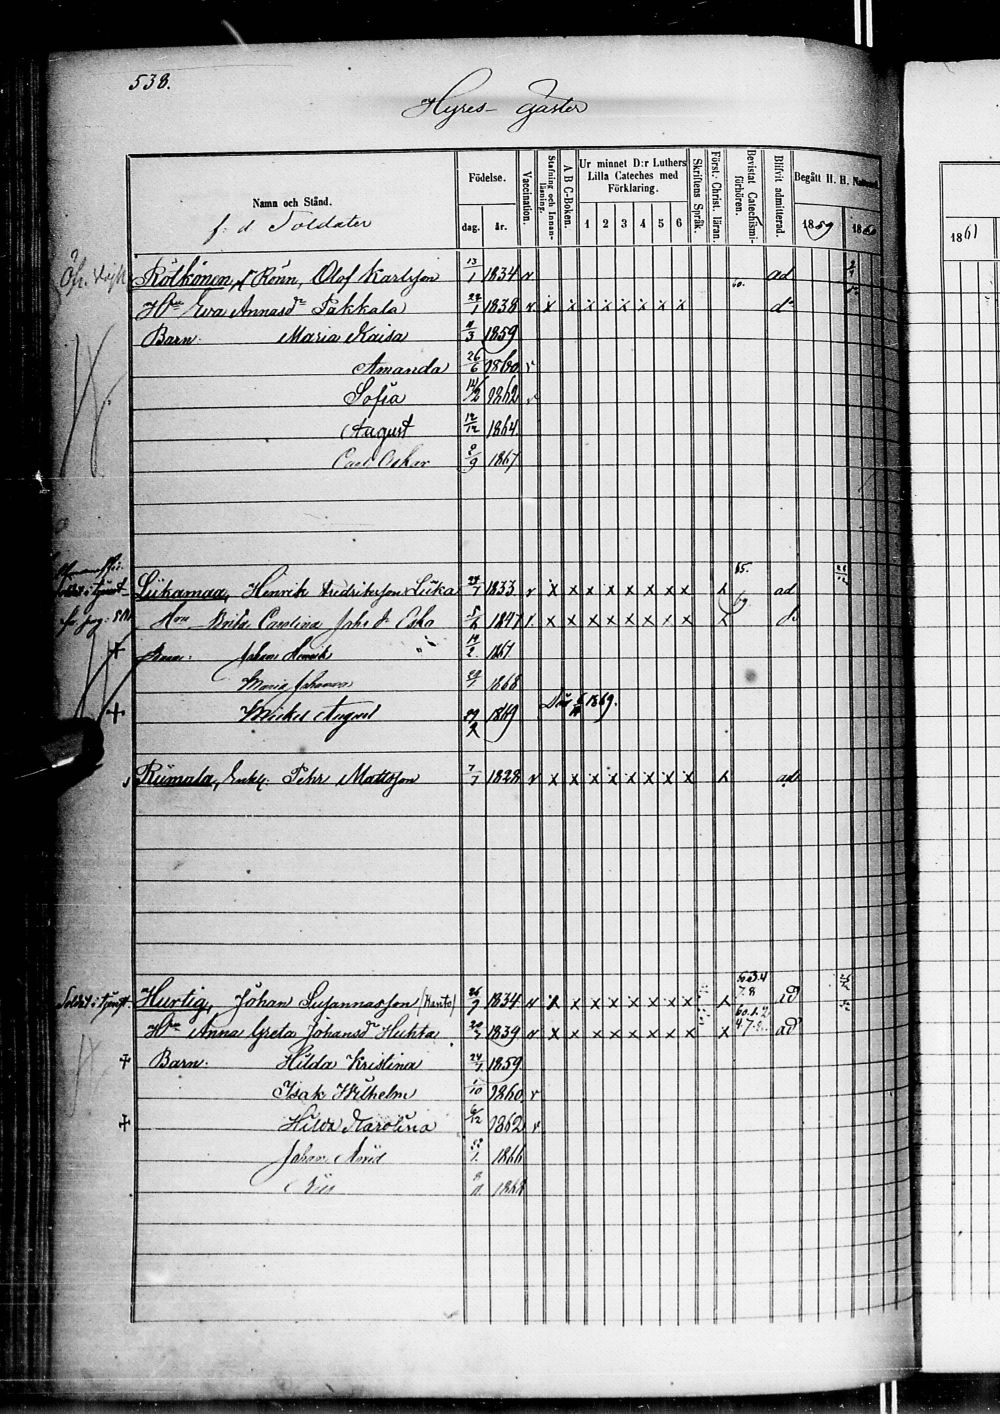 538.
Hyres-gäster
Namn och Stånd.
f: d Soldater
Födelse.
dag. år.
Vaccination.
Stafning och Innanläsning.
A B C-Boken.
Ur minnet D:r Luthers Lilla Cateches med Förklaring.
1 2 3 4 5 6
Skriftens Språk.
Först. Christ. läran.
Bevistat Catechismi-förhören.
Blifvit admitterad.
Begått H. H. Nattvard
1859 1860
1861
Rölkönen, Rönn, Olof Karlsson 13/1 1834 v ad
Hu Eva Annasdr Pakkala 1838 v x x x x x x x x d:o
Barn: Maria Kaisa 1859
Amanda 26/6 1860 v
Sofia 14/2 1862 v
August 12/12 1864
Carl Oskar 9/9 1867
65.
Liikamaa, Henrik Fredriksson Liika 1833 v x x x x x x x x x ad
69
Hru Brita Carolina Johs d. Esko 1847 v. x x x x x x x x x do
+ Barn: Johan Henrik 1867
Maria Johanna 1868
+ Mickel August 29/2 1869 Död 1869.
Riimala, Enkl. Pehr Mattsson 7/7 1828 v x x x x x x x x x ad
Soldat i tjenst. Hurtig, Johan Susannasson (Kunto) 26/9 1834 v x x x x x x x x x 7.8 ad
Hu Anna Greta Johansdr Huhta 1839 v x x x x x x x x x ad
+ Barn: Hilda Kristina 24/7 1859
Isak Wilhelm 1860 v
+ Hilda Karolina 6/12 1862 v
Johan Arvid 1866
1868